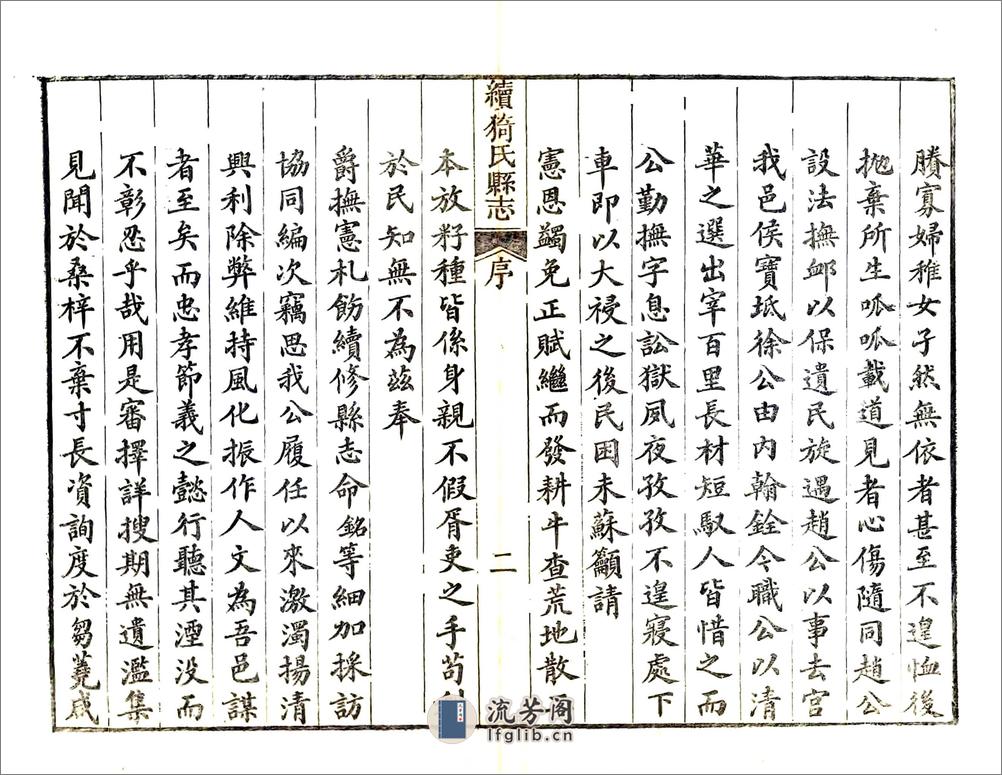 賸寡婦稚女孑然無依者甚至不遑恤後
抛棄所生呱呱載道見者心傷隨同趙公
設法撫卹以保遺民旋遇趙公以事去官
我邑侯寶坻徐公由內翰銓今職公以清
華之選出宰百里長材短馭人皆惜之而
公勤撫字息訟獄夙夜孜孜不遑寢處下
車即以大祲之後民困未蘇籲請
憲恩蠲免正賦繼而發耕牛查荒地散
續猗氏縣志
序
二
本放籽種皆係身親不假胥吏之手苟利
於民知無不為茲奉
爵撫憲札飭續修縣志命銘等細加採訪
協同編次竊思我公履任以來激濁揚清
興利除弊維持風化振作人文為吾邑謀
者至矣而忠孝節義之懿行聽其湮没而
不彰忍乎哉用是審擇詳搜期無遺濫集
見聞於桑梓不棄寸長資詢度於芻蕘咸
流芳阁
lfglib.cn